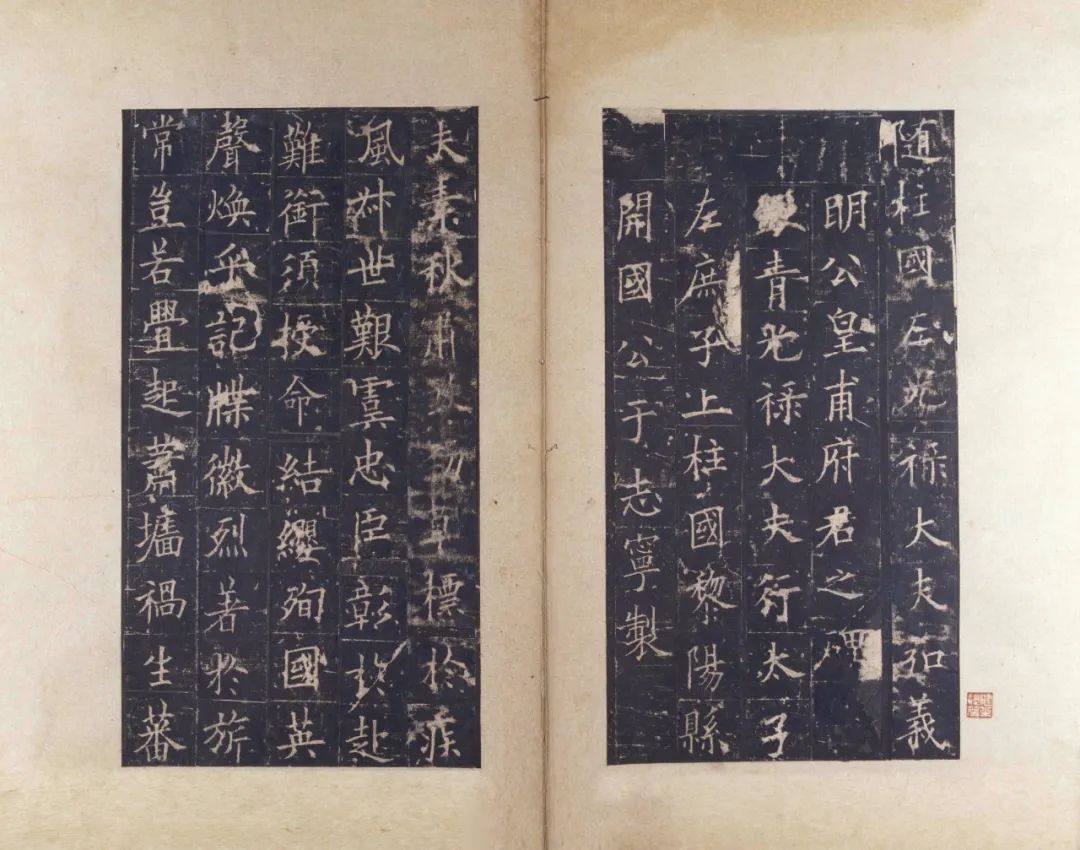 随柱國左光祿大夫弘義
明公皇甫府君之碑
銀青光祿大夫行太子
左庶子上柱國黎陽縣
開國公于志寧製
夫素秋肅煞勁草標於疾
風叔世艱虞忠臣彰於赴
難銜須授命結纓殉國英
聲煥乎記牒徽烈著於旂
常豈若疊起蕭墻禍生蕃